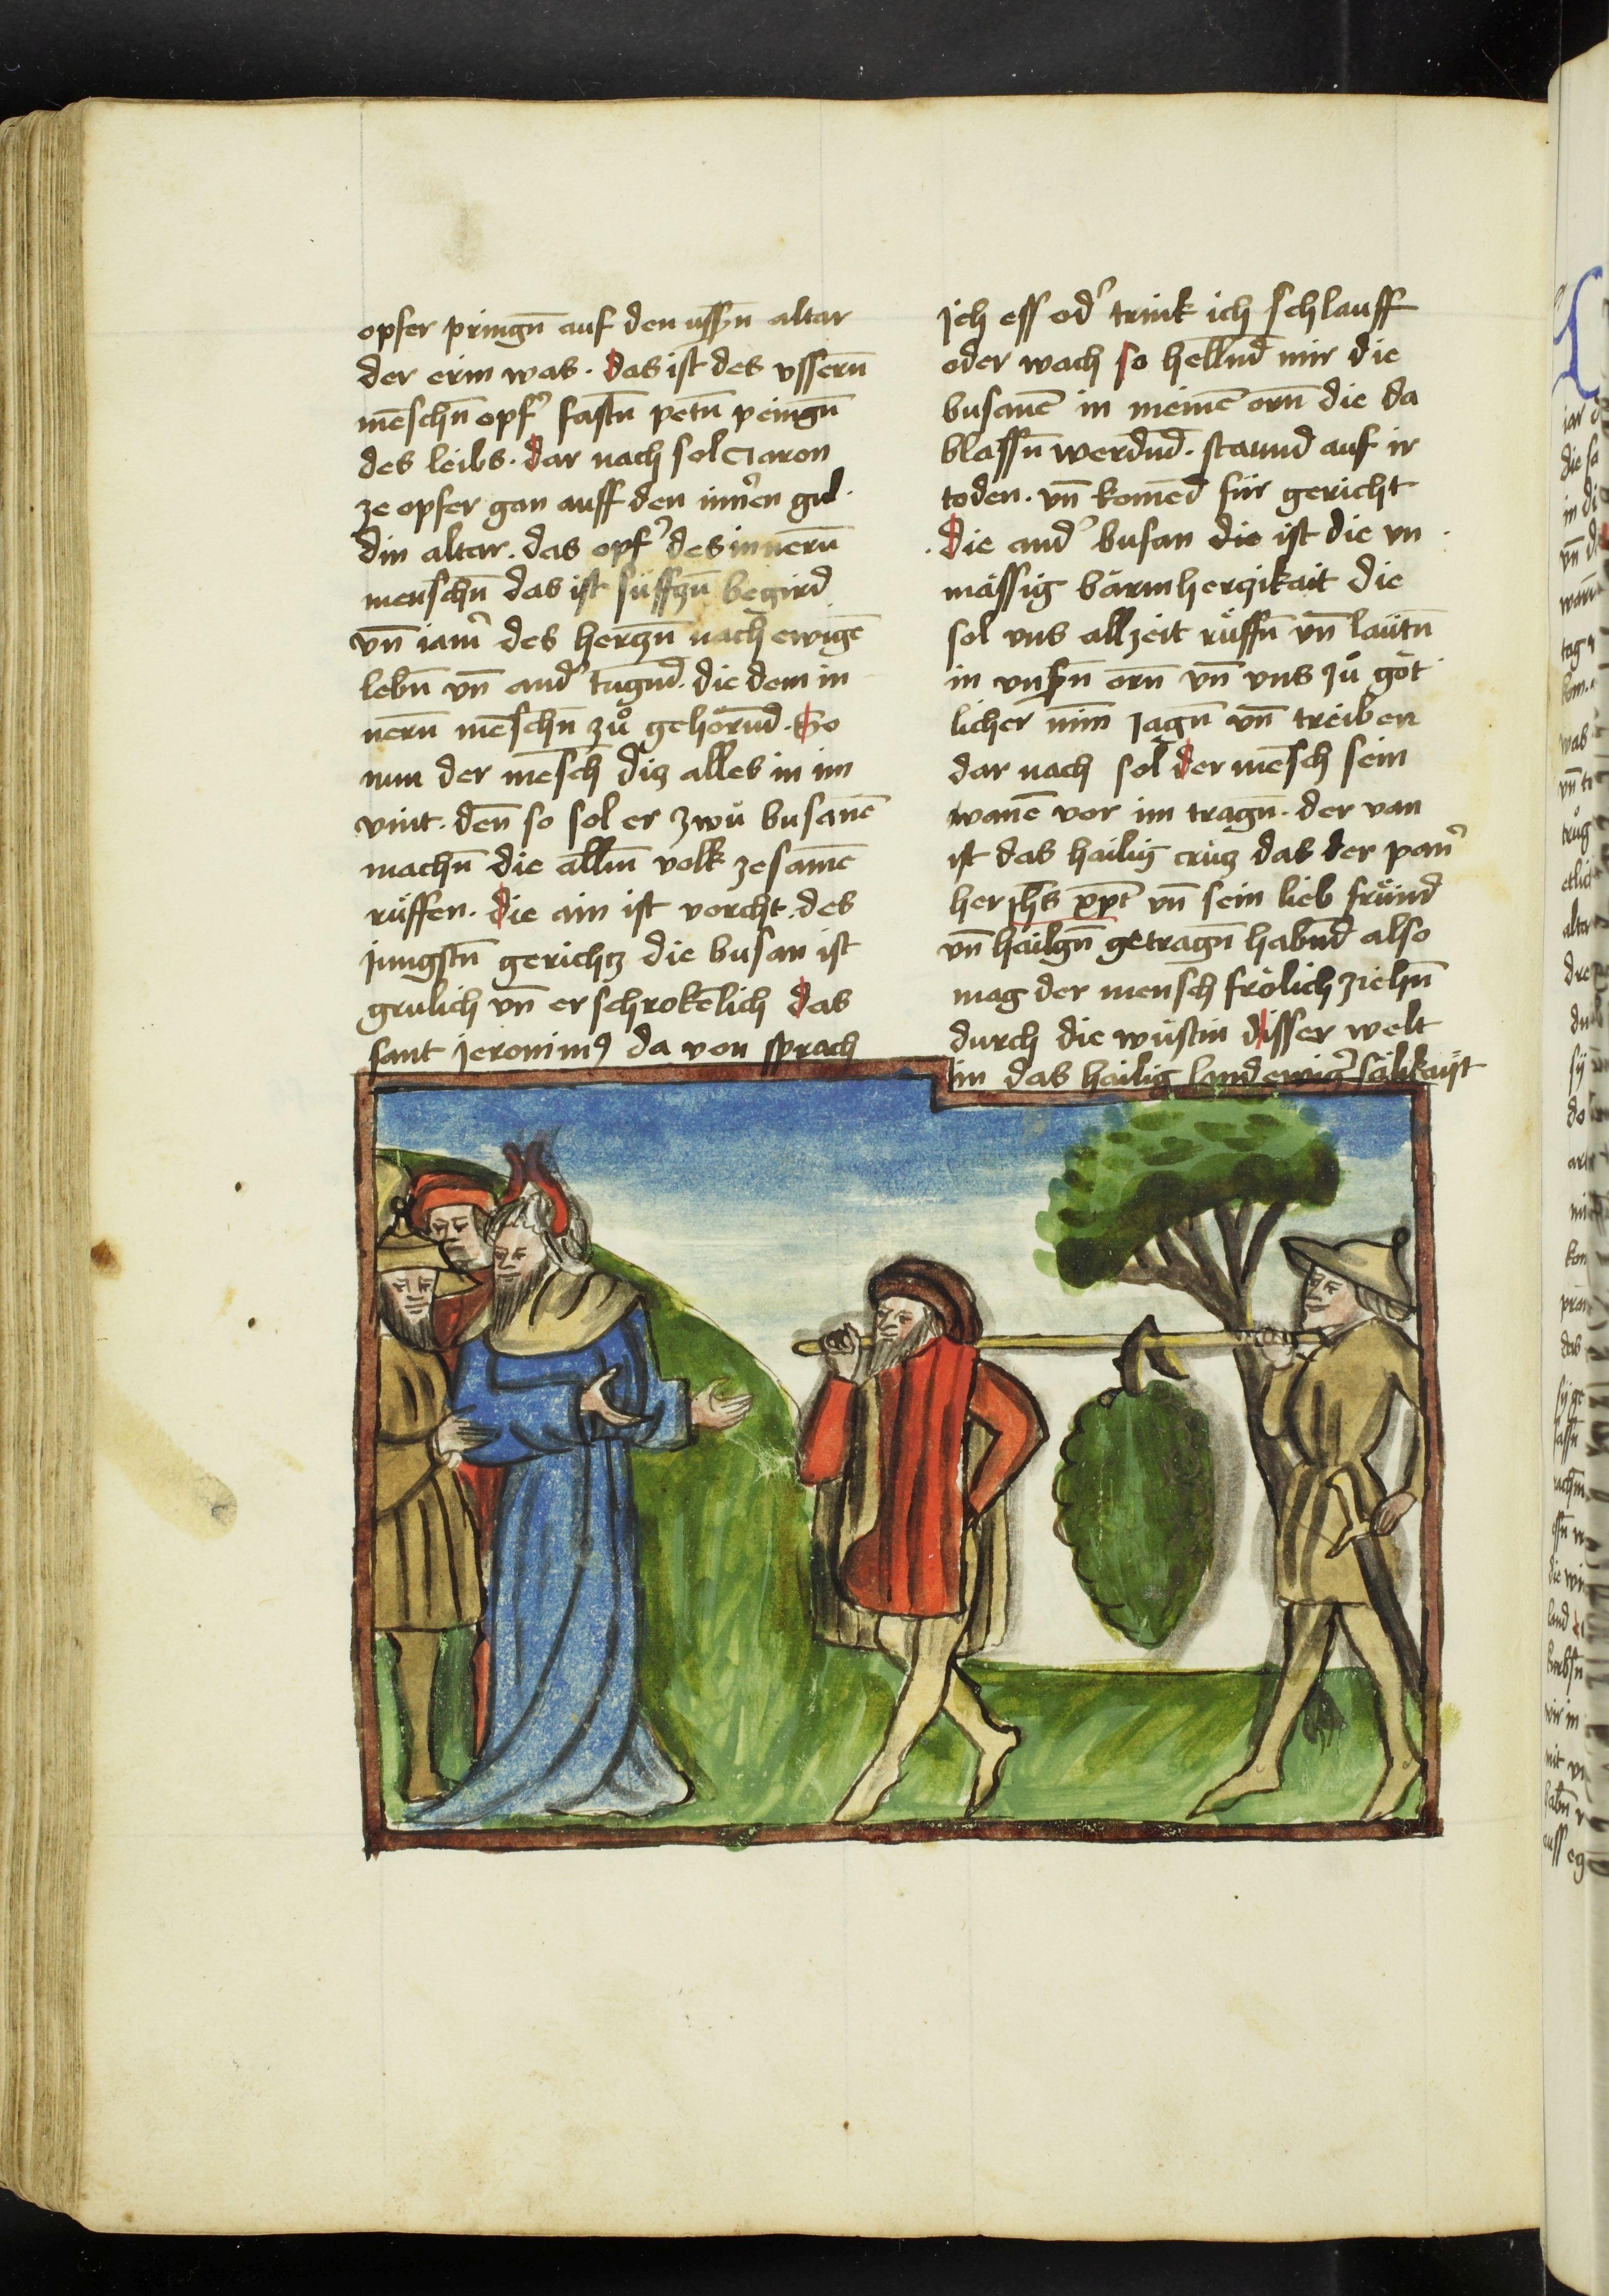 opfer pringn̄ auf den ussṙn altar
der erin was. das ist des ussern̄
mēschn̄ opf᷑ fastn̄ petn̄ peingn̄
des leibs. dar nach sol Aaron
ze opfer gan auff den inn᷑en gul
din altar. das opf᷑ des innern̄
menschn̄ das ist süffzn̄ begird
vn̄ iam᷑ des herzn̄ nach ewigē
lebn̄ vn̄ and᷑ tugnd̄. die dem in
nern̄ mēschn̄ zů gehörnd̄. So
nun der mēsch diz alles in im
vint. den̄ so sol er zwů busanē
machn̄ die allm̄ volk zesamē
rüffen. die ain ist vorcht. des
jungstn̄ gerichtz die busan ist
grulich vn̄ erschrokēlich das
sant jeronimꝰ da von sprach
Jch ess od᷑ trink ich schlauff
oder wach so hellnd̄ mir die
busanē in meinē orn̄ die da
blassn̄ werdnd̄. staund auf ir
toden. vn̄ komēd für gericht
die and᷑ busan die ist die vn
mässig bärmherzikait die
sol vns allzeit rüffn̄ vn̄ lautn̄
in vnsṙn orn̄ vn̄ vns zů göt
licher min̄ jagn̄ vn̄ treiben
dar nach sol der mēsch sein
wanē vor im tragn̄. der van
ist das hailig crüz das der pan᷑
her jhs̄ xp̄c vn̄ sein lieb fründ
vn̄ hailgn̄ getragn̄ habnd̄ also
mag der mensch frölich ziehn̄
durch die wůstin disser welt
in das hailig land ewig᷑ sälikayt